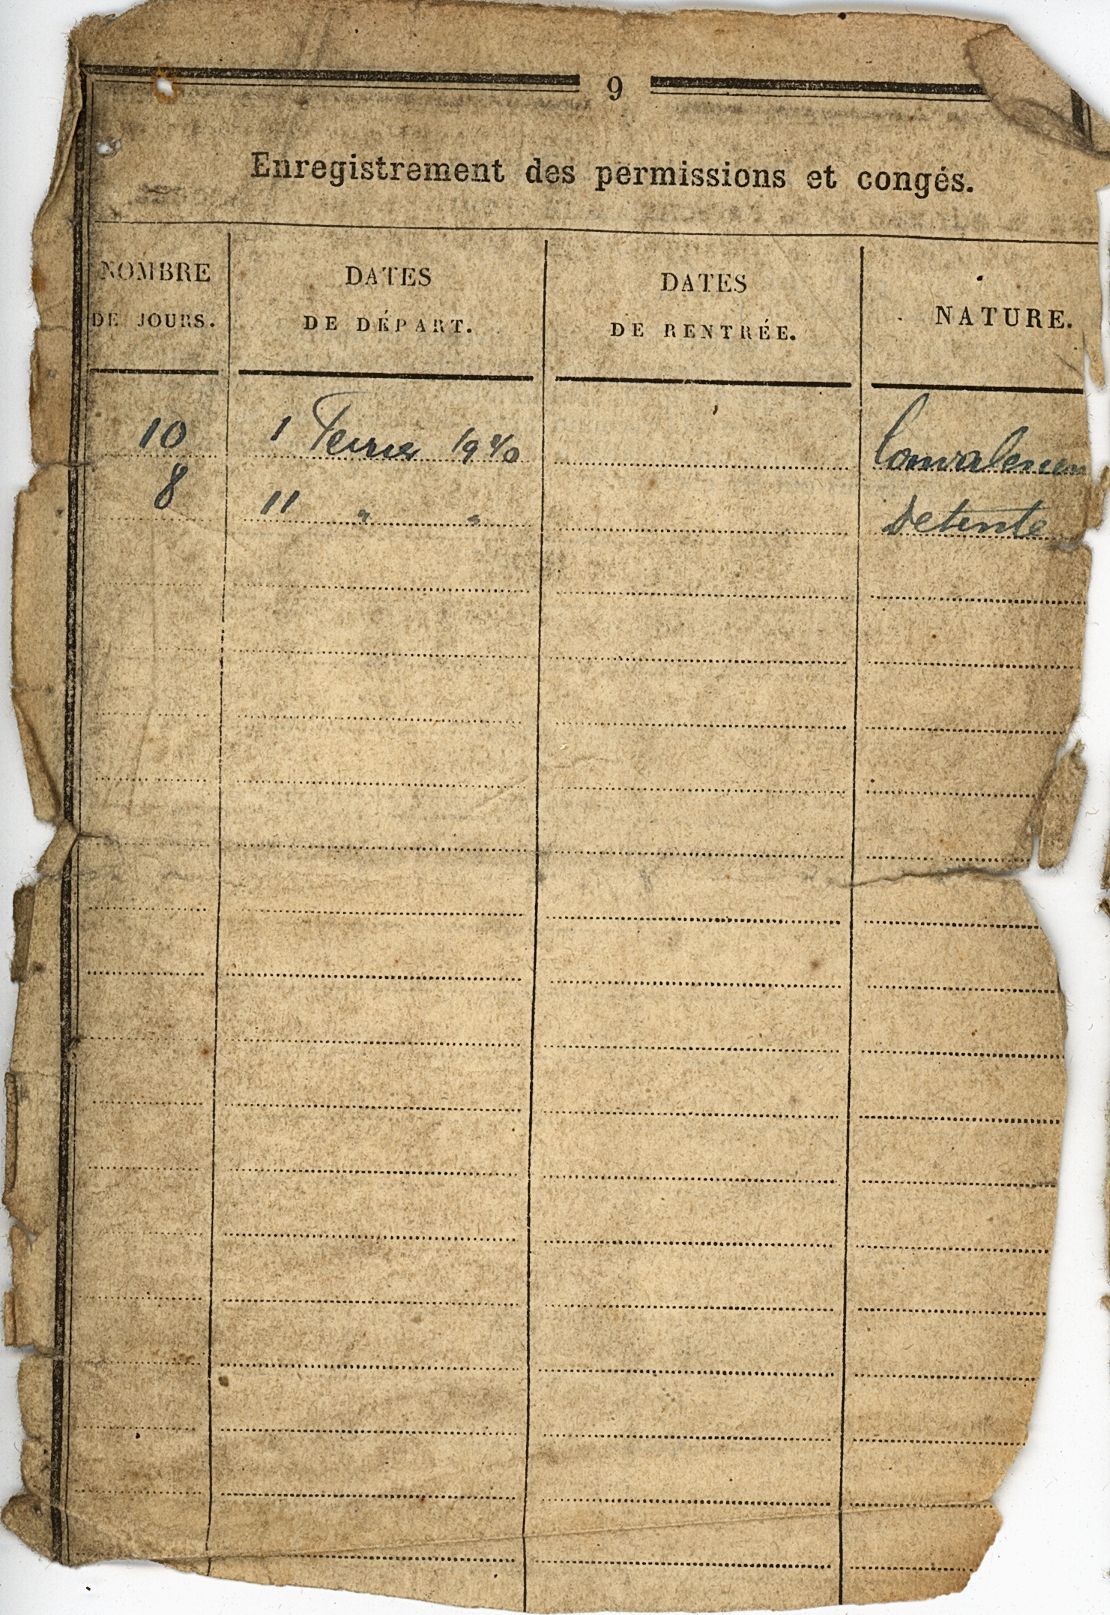 9
Enregistrement des permissions et congés.
NOMBRE DE JOURS.
DATES DE DÉPART.
DATES DE RENTRÉE.
NATURE.
10 1 Fevrier 1940 Convalescen
8 11 " " Detente